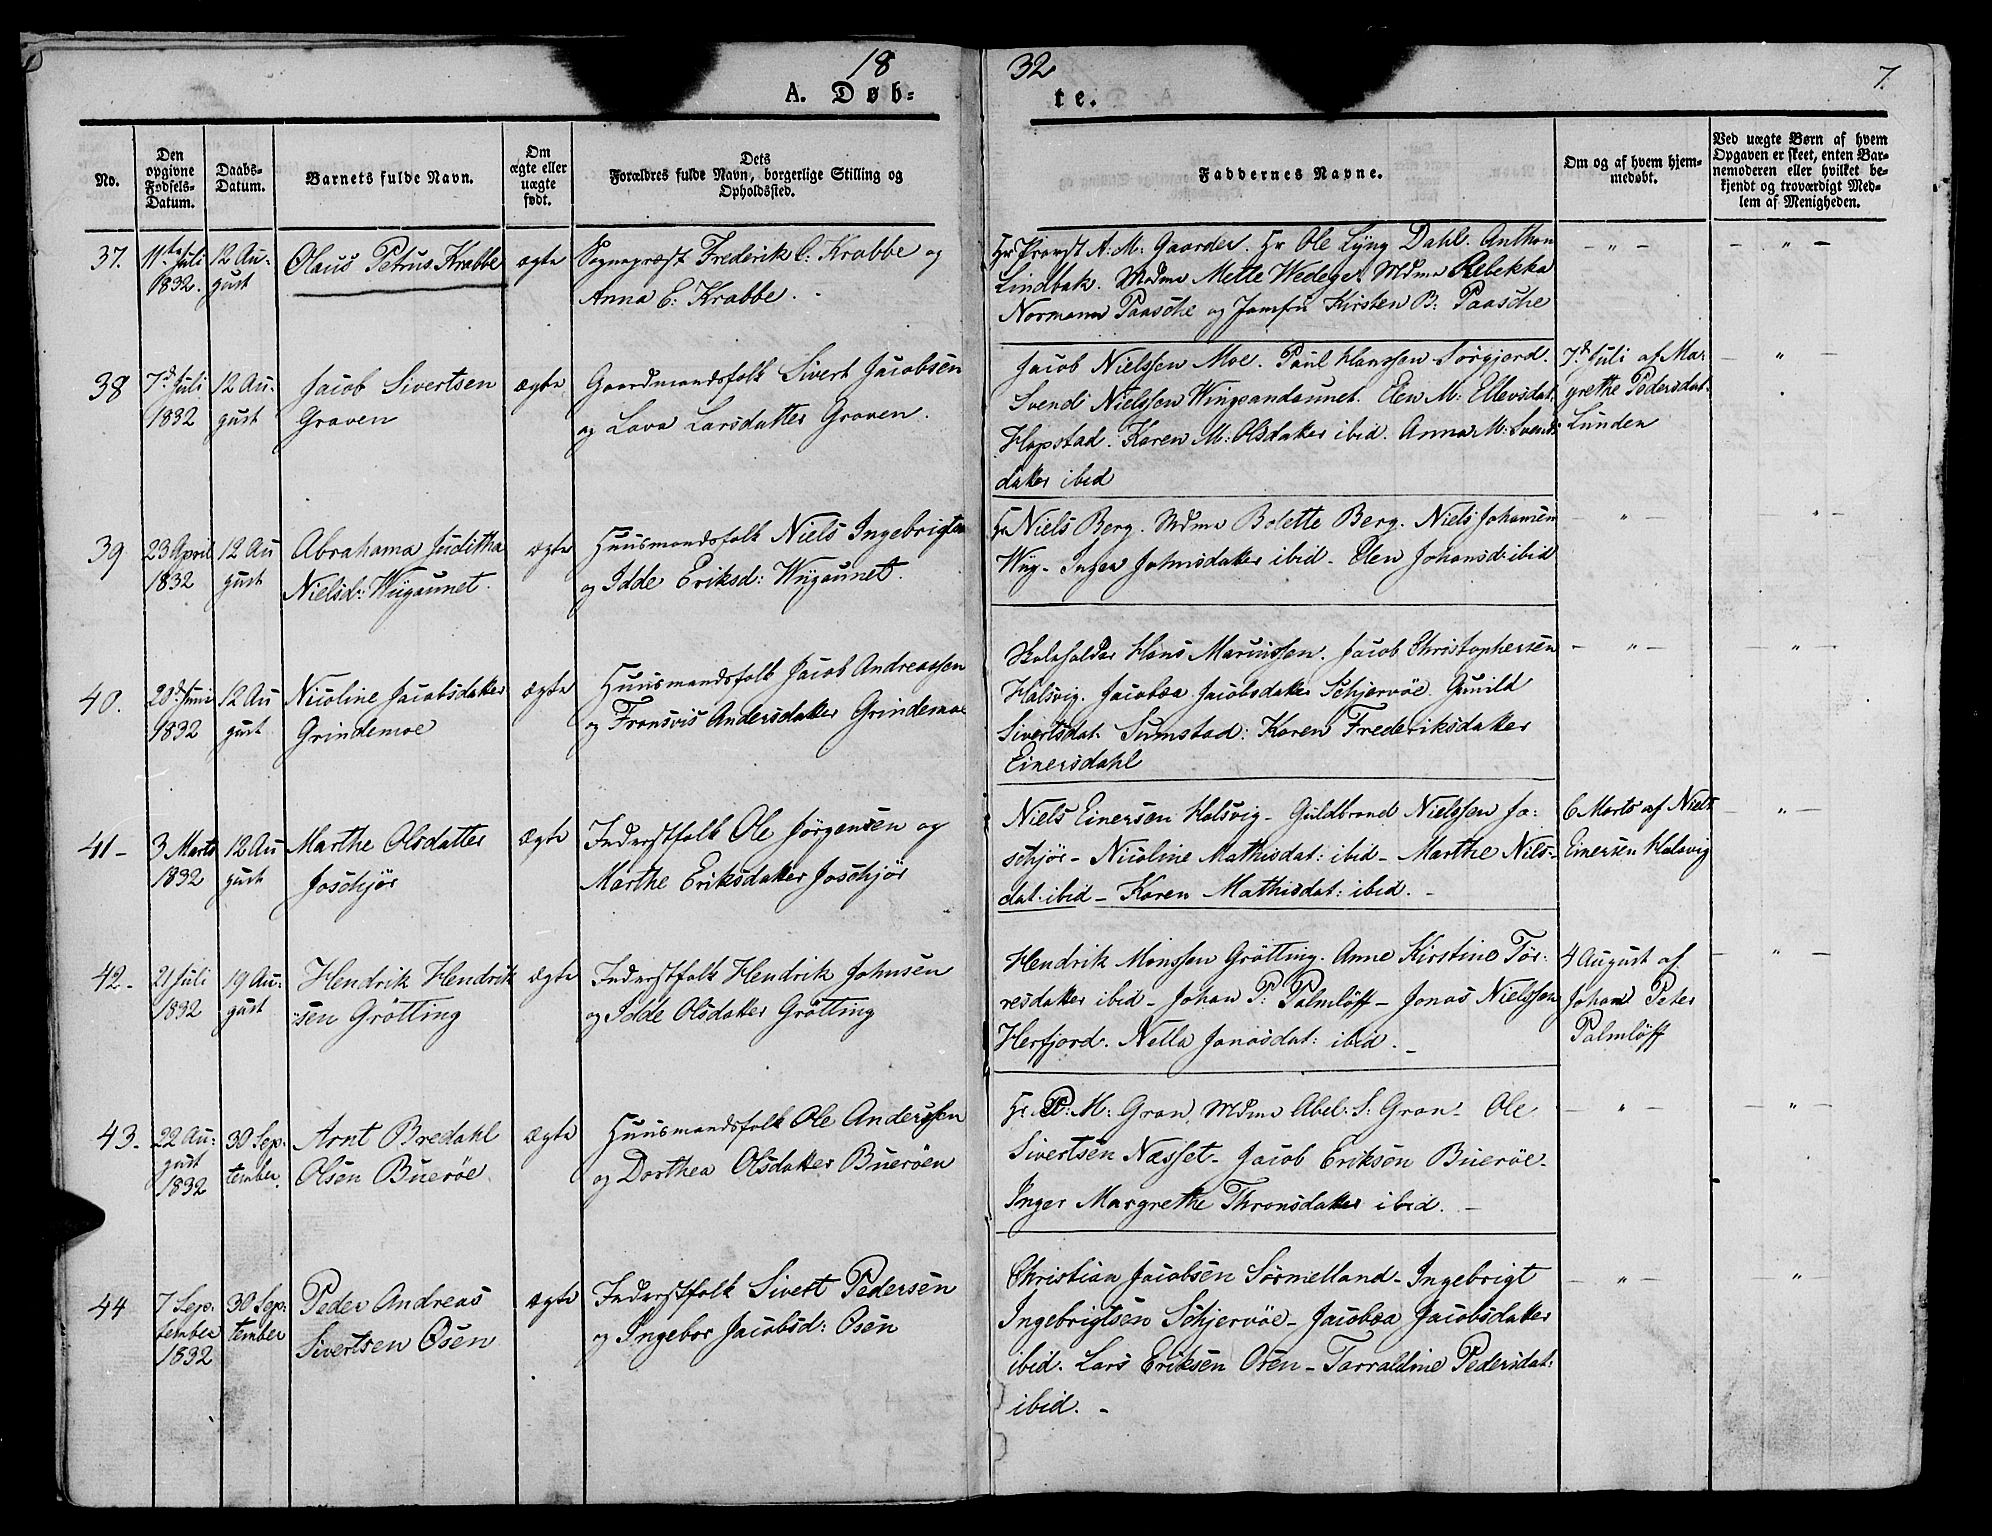 18
32
7.
A. Døb-
te.
No.
Den
opgivne
Fødsels-
Datum.
Daabs-
Datum.
Barnets fulde Navn.
Om
ægte eller
uægte
født.
Dets
Forældres fulde Navn, borgerlige Stilling og
Opholdssted.
Faddernes Navne.
Om og af hvem hjem-
medøbt.
Ved uægte Børn af hvem
Opgaven er skeet, enten Bar-
nemoderen eller hvilket be-
kjendt og troværdigt Med-
lem af Menigheden.
37.
11te Juli
1832.
12 Au-
gust
Olaus Petrus Krabbe
ægte
Sognepræst Frederik C: Krabbe og
Anna E: Krabbe.
Hr Provst A: M: Gaarder. Hr Ole Lyng Dahl. Anthon
Lindbak. Mdme Mette Wedege. Mdme Rebekka
Normann Paasche og Jomfru Kirsten B: Paasche
— " —
— " —
38
7d Juli
1832
12 Au-
gust
Jacob Sivertsen
Graven
ægte
Gaardmandsfolk Sivert Jacobsen
og Lava Larsdatter Graven.
Jacob Nielssen Moe. Paul Hanssen Sørgjord.
Svend Nielssen Wingsandaunet. Elen M: Ellevsdat:
Hopstad. Karen M: Olsdatter ibid. Anna M: Svends
datter ibid
7d Juli af Mar
grethe Pedersdat:
Lunden
— " —
39
23 April
1832
12 Au
gust
Abrahama Juditha
Nielsd: Wüyaunet.
ægte
Huusmandsfolk Niels Ingebrigtsn
og Idde Eriksd: Wüyaunet.
Hr Niels Berg. Mdme Bolette Berg. Niels Johansen
Wüy- Inger Johnsdatter ibid - Elen Johansd: ibid
— " —
— " —
40.
20d Juni
1832
12 Au
gust
Nicoline Jacobsdatter
Grindemoe
ægte
Huusmandsfolk Jacob Andreassen
og Fransvis Andersdatter Grindemoe
Skoleholder Hans Mariussen. Jacob Christophersen
Halsvig. Jacobæa Jacobsdatter Schjervøe. Gunild
Sivertsdat: Sumstad: Karen Frederiksdatter
Einersdahl
— " —
— " —
41-
3 Marts
1832
12 Au
gust
Marthe Olsdatter
Joschjør
ægte
Inderstfolk Ole Jørgensen og
Marthe Eriksdatter Joschjør
Niels Einersen Halsvig - Guldbrand Nielssen Jo:
schjør - Nicoline Mathisdat: ibid - Marthe Nils-
dat: ibid - Karen Mathisdat: ibid. -
6 Marts af Niels
Einersen Halsvig
— " —
42-
21 Juli
1832
19 Au:
gust
Hendrik Hendrik
:sen Grøtting
ægte
Inderstfolk Hendrik Johnsen
og Idde Olsdatter Grøtting
Hendrik Monssen Grøtting. Anne Kirstine Tør:
resdatter ibid - Johan P: Palmlöff - Jonas Nielssen
Herfjord. Nella Jonasdat: ibid. -
4 August af
Johan Peter
Palmlöff
— " —
43.
22 Au:
gust
1832
30 Sep:
tember.
Arnt Bredahl
Olsen Buerøe
ægte
Huusmandsfolk Ole Anderssen
og Dorthea Olsdatter Buerøen
Hr P: M: Gran Mdme Abel: S: Gran - Ole
Sivertsen Næsset - Jacob Eriksen Buerøe-
Inger Margrethe Thronsdatter ibid. -
— " —
— " —
44
7 Sep:
tember
1832
30 Sep:
tember
Peder Andreas
Sivertsen Osen
ægte
Inderstfolk Sivert Pedersen
og Ingebor Jacobsd: Osen
Christian Jacobsen Sørmelland - Ingebrigt
Ingebrigtsen Schjervøe - Jacobæa Jacobsdatter
ibid. Lars Eriksen Osen - Tarraldine Pedersdat:
ibid. -
— " —
"